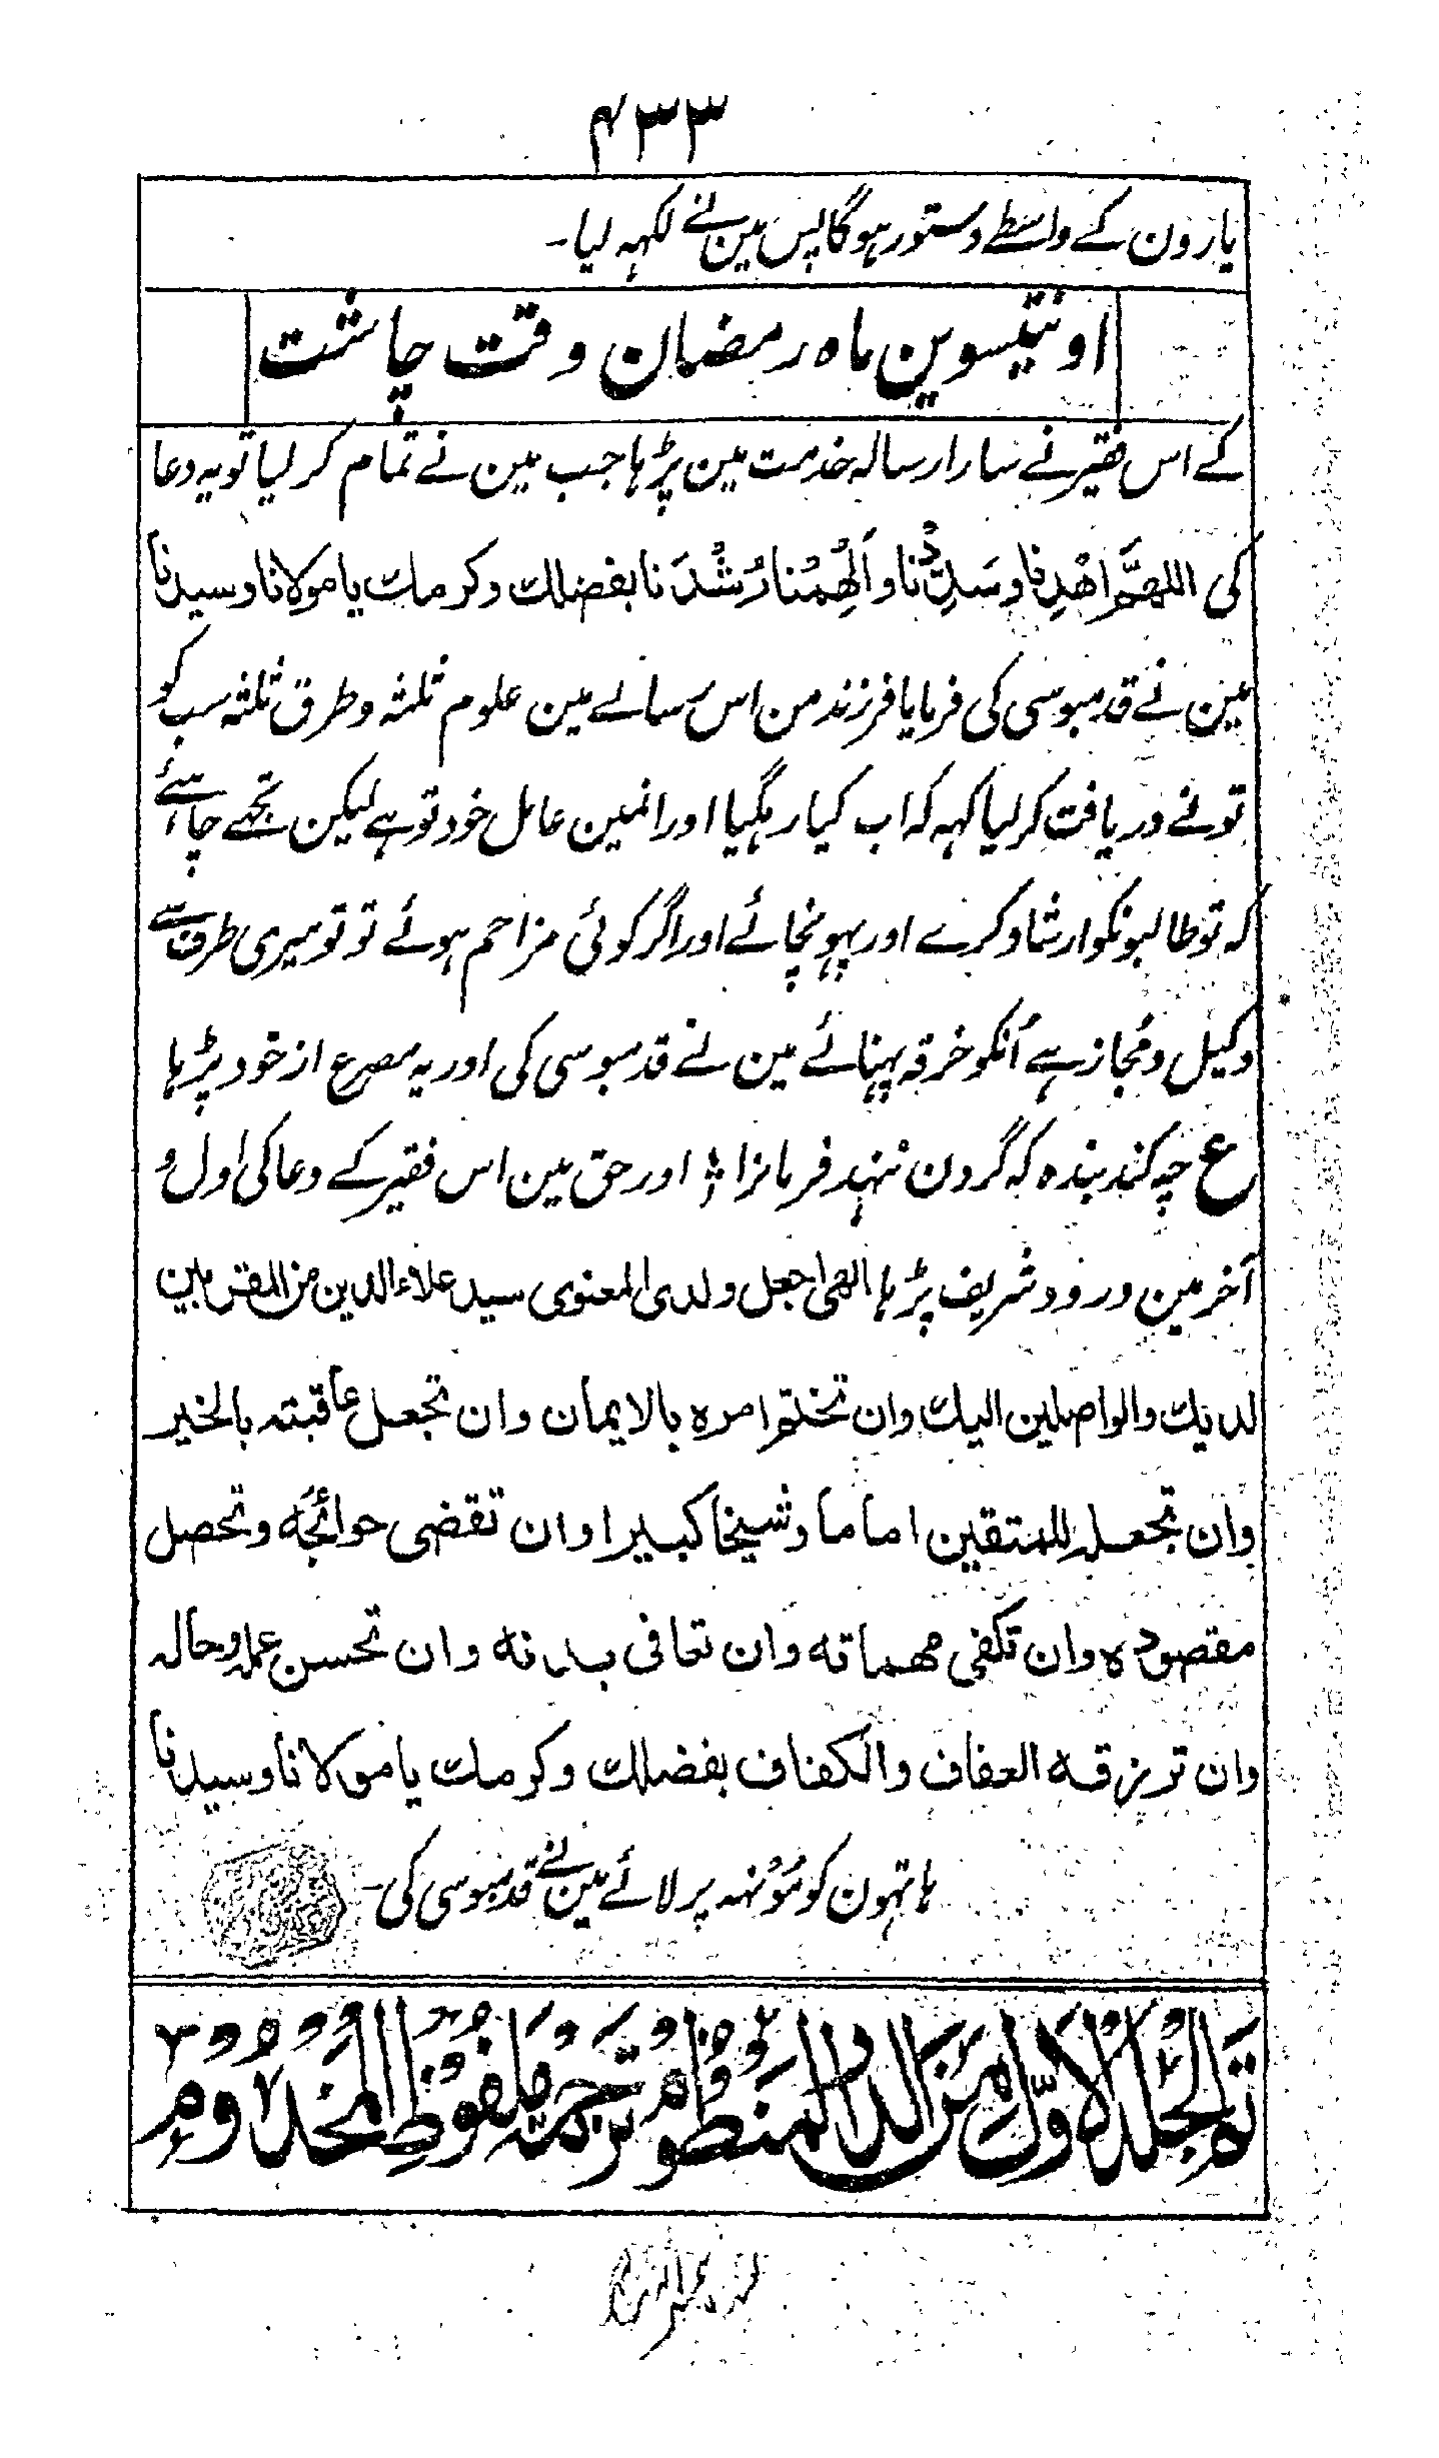 ۴۳۳
یارون کے واسطے دستور ہوگا پس مین نے لکہہ لیا۔
اونتیسوین ماہ رمضان وقت چاشت
کے اس فقیر نے سارا رسالہ خدمت مین پڑہا جب مین نے تمام کر لیا تو یہ دعا
کی اللھمَّ اھْدِنا وسَدِّدْنا و اَلْهِمْنا رُشْدَنا بفضلك وكرمك يا مولانا وسيدنا
مین نے قدمبوسی کی فرمایا فرزند من اس رسالے مین علوم ثلثہ و طرق ثلثہ سب کو
تونے دریافت کر لیا کہہ کہ اب کیا رہگیا اور انمین عامل خود تو ہے لیکن تجہے چاہئے
کہ تو طالبونکو ارشاد کرے اور پہونچائے اور اگر کوئی مزاحم ہوئے تو تو میری طرف سے
وکیل و مُجاز ہے اُنکو خرقہ پہنائے مین نے قدمبوسی کی اور یہ مصرع از خود پڑہا
ع چہ کند بندہ کہ گردن ننہد فرمانرا ؛ اور حق مین اس فقیر کے دعا کی اول و
آخر مین درود شریف پڑہا الھی اجعل ولدی المعنوی سید علاء الدین من المقربین
لديك والواصلين اليك وان تختم امره بالايمان وان تجعل عاقبته بالخير
وان تجعله للمتقين اماما وشيخا كبيرا وان تقضى حوائجَه وتحصل
مقصوده وان تكفى مهماته وان تعافى بدنه وان تحسن عمله وحاله
وان ترزقه العفاف والكفاف بفضلك وكرمك يا مولانا وسيدنا
ہاتہون کو مُونہہ پر لائے مین نے قدمبوسی کی۔
تم الجُلد الاوّل من الدر المنظُوم ترجمۃ ملفوظِ المخدُومِ